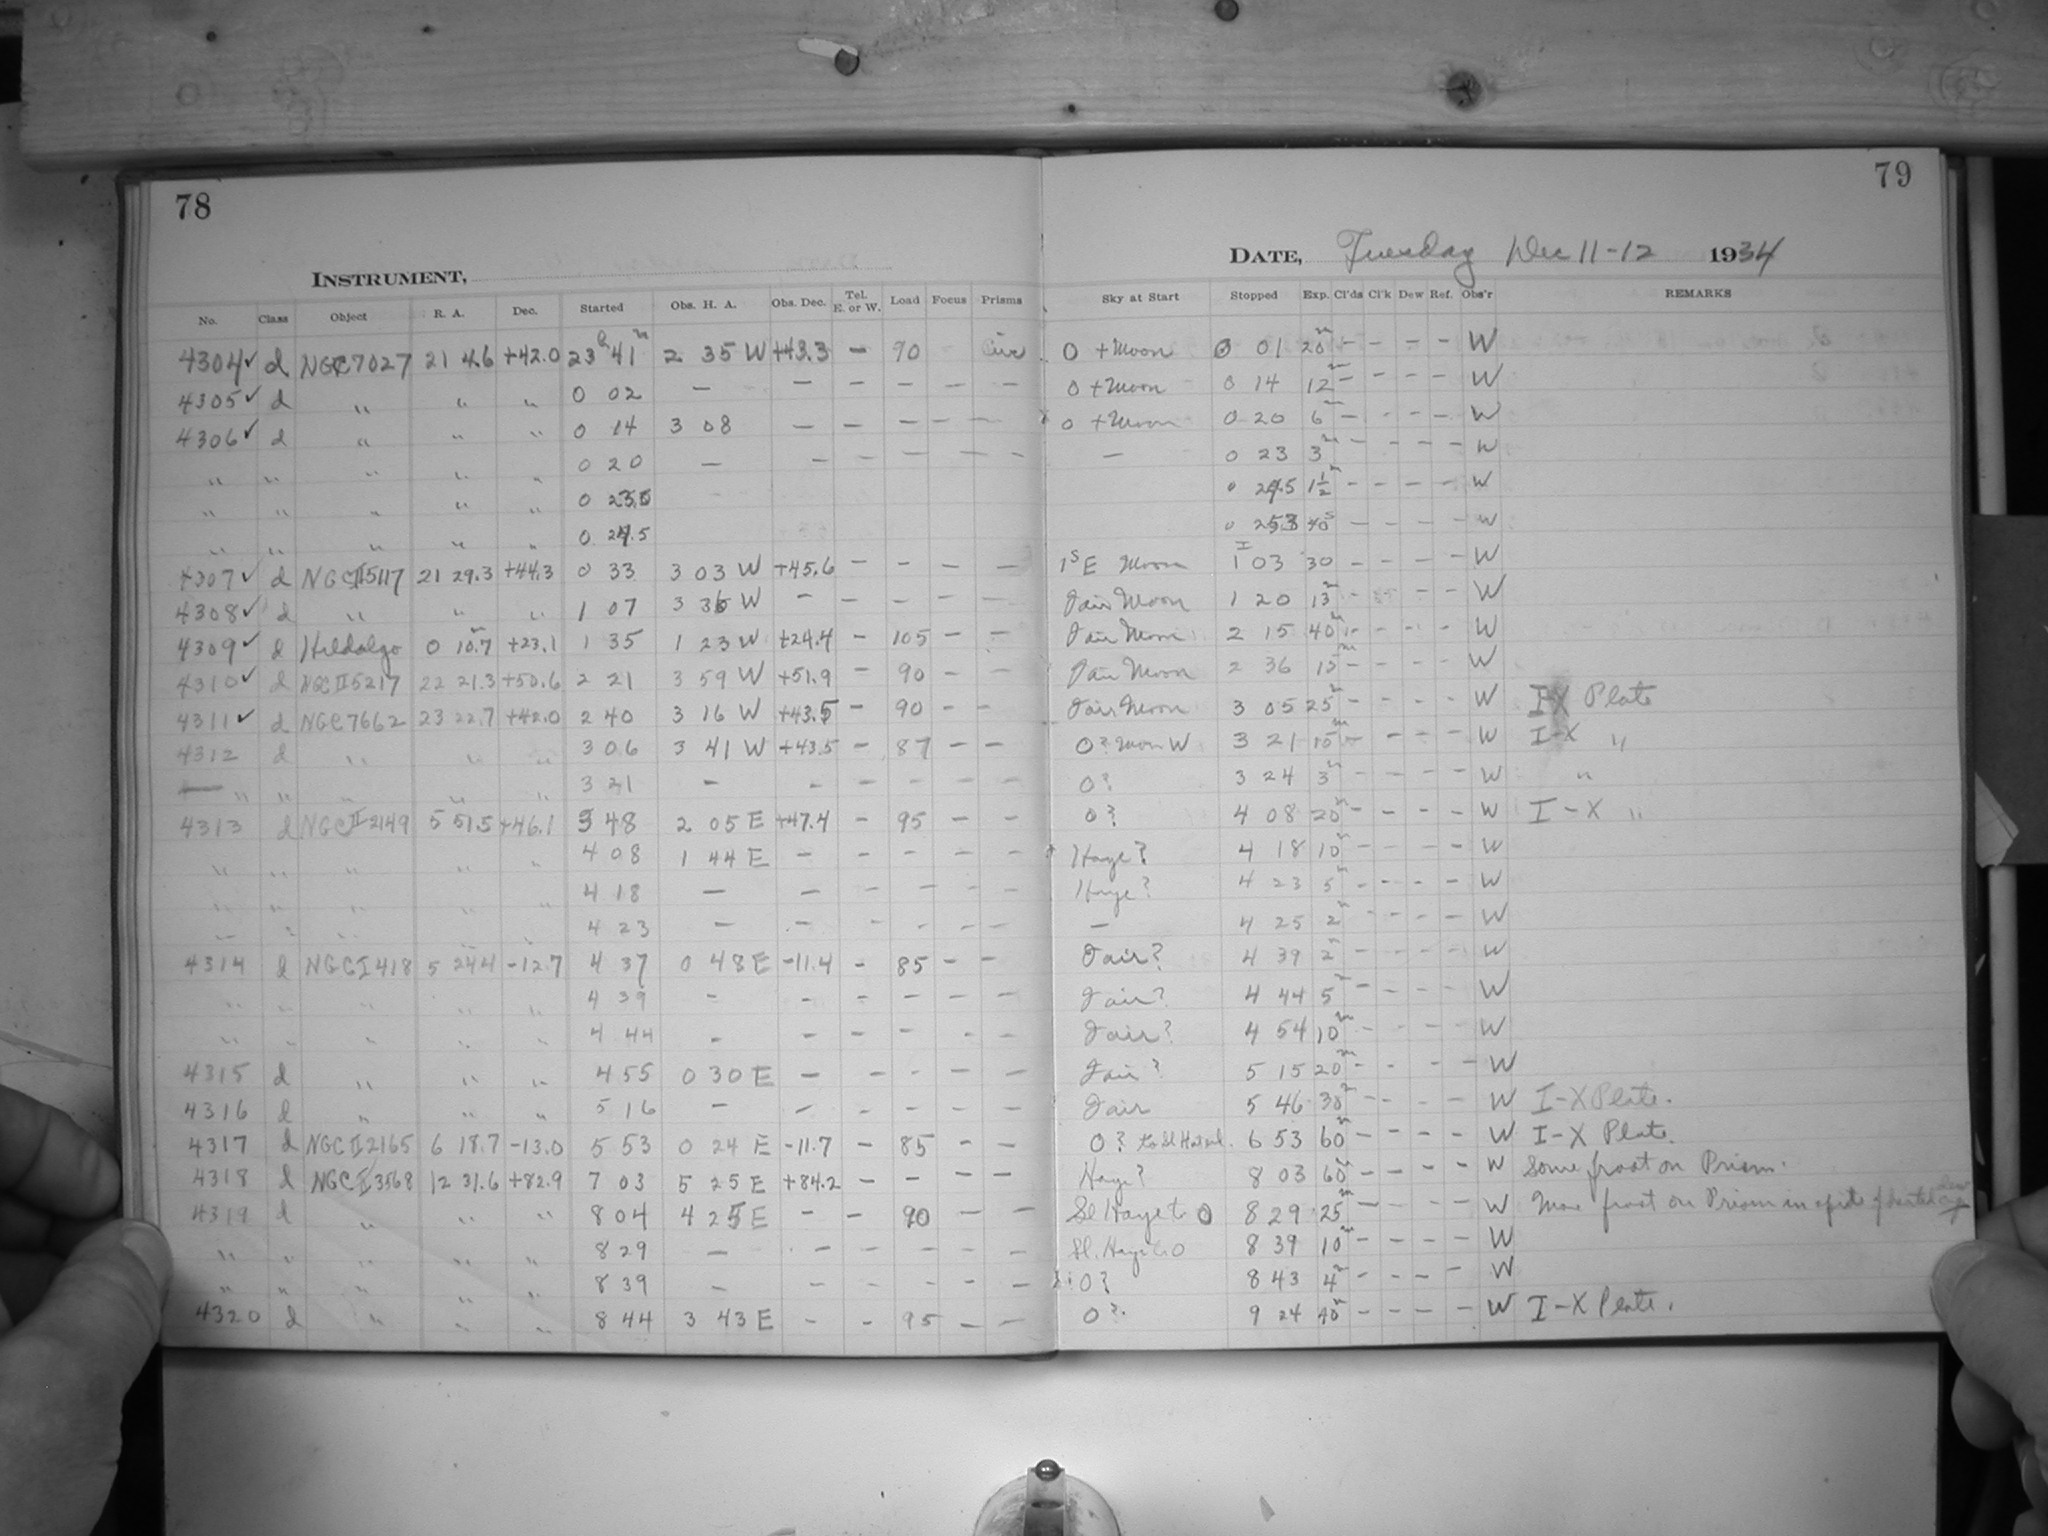 78
79
INSTRUMENT,
DATE, Tuesday Dec 11-12 1934
No. Class Object R. A. Dec. Started Obs. H. A. Obs. Dec. Tel. E. or W. Load Focus Prisms Sky at Start Stopped Exp. Cl'ds Cl'k Dew Ref. Obs'r REMARKS
4304 ✓ d NGC 7027 21 4.6 +42.0 23h 41m 2 35 W +43.3 – 90 0 + Moon 0 01 20m – – – – W
4305 ✓ d " " " 0 02 – – – – – – 0 + Moon 0 14 12m – – – – W
4306 ✓ d " " " 0 14 3 08 – – – – – 0 + Moon 0 20 6m – – – – W
" " " " " 0 20 – – – – – – – 0 23 3m – – – – W
" " " " " 0 23.5 0 24.5 1½m – – – – W
" " " " " 0 24.5 0 25.3 40s – – – – W
4307 ✓ d NGC II 5117 21 29.3 +44.3 0 33 3 03 W +45.6 – – – – 1s E Moon 1 03 30 – – – – W
4308 ✓ d " " " 1 07 3 36 W – – – – – Fair Moon 1 20 13m – – – – W
4309 ✓ d Hildalgo 0 10.7 +23.1 1 35 1 23 W +24.4 – 105 – – Fair Moon 2 15 40m – – – – W
4310 ✓ d NGC II 5217 22 21.3 +50.6 2 21 3 59 W +51.9 – 90 – – Fair Moon 2 36 15m – – – – W
4311 ✓ d NGC 7662 23 22.7 +42.0 2 40 3 16 W +43.5 – 90 – – Fair Moon 3 05 25m – – – – W I-X Plate
4312 d " " " 3 06 3 41 W +43.5 – 87 – – 0? Moon W 3 21 15m – – – – W I-X "
" " " " " 3 21 – – – – – – 0? 3 24 3m – – – – W "
4313 d NGC II 2149 5 51.5 +46.1 3 48 2 05 E +47.4 – 95 – – 0? 4 08 20m – – – – W I-X "
" " " " " 4 08 1 44 E – – – – – Haze? 4 18 10m – – – – W
" " " " " 4 18 – – – – – – Haze? 4 23 5m – – – – W
" " " " " 4 23 – – – – – – – 4 25 2m – – – – W
4314 d NGC I 418 5 24.4 -12.7 4 37 0 48 E -11.4 – 85 – – Fair? 4 39 2m – – – – W
" " " " " 4 39 – – – – – – Fair? 4 44 5m – – – – W
" " " " " 4 44 – – – – – – Fair? 4 54 10m – – – – W
4315 d " " " 4 55 0 30 E – – – – – Fair? 5 15 20m – – – – W
4316 d " " " 5 16 – – – – – – Fair 5 46 30m – – – – W I-X Plate.
4317 d NGC II 2165 6 18.7 -13.0 5 53 0 24 E -11.7 – 85 – – 0? to Sl 6 53 60m – – – – W I-X Plate.
4318 d NGC II 3568 12 31.6 +82.9 7 03 5 25 E +84.2 – – – – Haze? 8 03 60m – – – – W Some frost on Prism.
4319 d " " " 8 04 4 25 E – – 90 – – Sl Haze to 0 8 29 25m – – – – W More frost on Prism in spite of heated dew cap
" " " " " 8 29 – – – – – – Sl. Haze to 0 8 39 10m – – – – W
" " " " " 8 39 – – – – – – 0? 8 43 4m – – – – W
4320 d " " " 8 44 3 43 E – – 95 – – 0? 9 24 40m – – – – W I-X Plate.